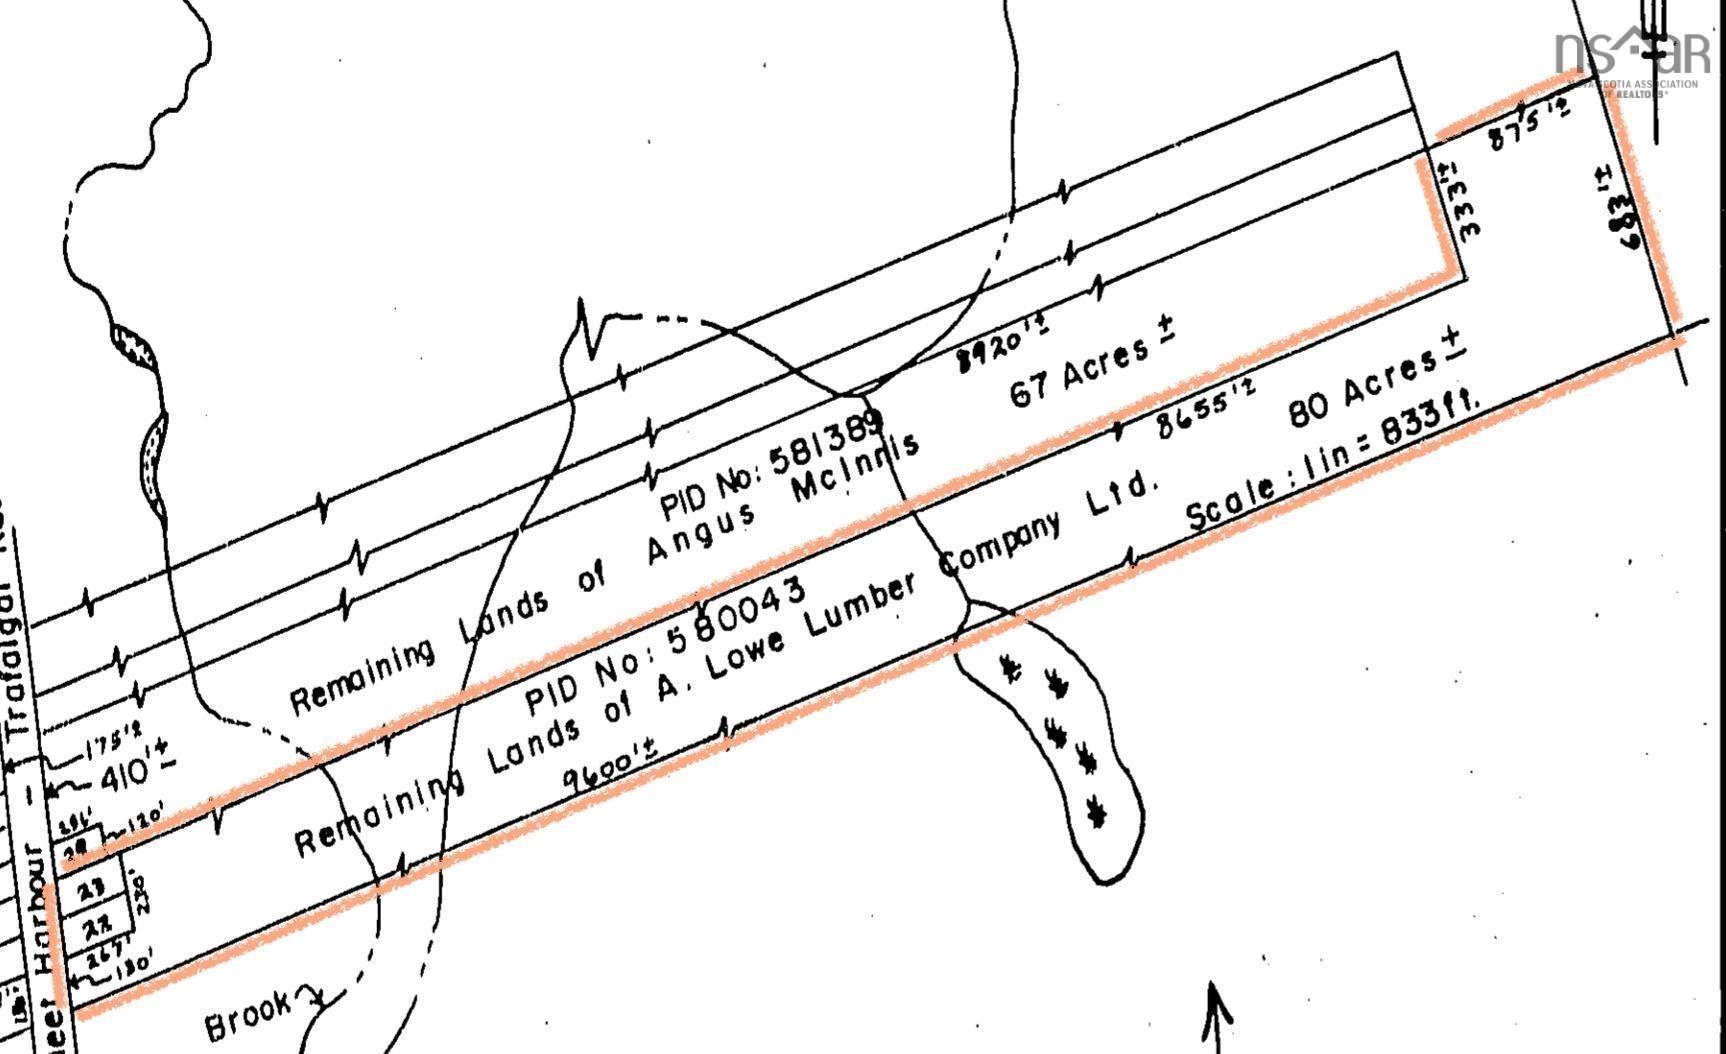 nsar
NOVA SCOTIA ASSOCIATION
OF REALTORS®
875'±
333'±
683'±
8920'±
67 Acres ±
PID No: 581389
Remaining Lands of Angus McInnis
8655'±
80 Acres ±
PID No: 580043
Remaining Lands of A. Lowe Lumber Company Ltd.
Scale : 1 in = 833 ft.
9600'±
175'±
410'±
120'
23
22
230'
267'
130'
Trafalgar
Harbour -
Brook